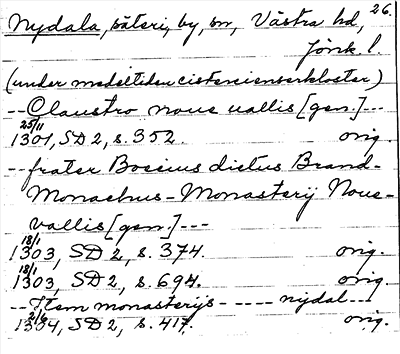 Nydala, säteri, by, sn, Västra hd, 26.
Jönk. l.
(under medeltiden cistercienserkloster)
-- Claustro noue uallis [gen.] ---
25/11
1301, SD 2, s. 352. orig.
-- frater Boecius dictus Brand-
Monachus - Monasterij Noue-
vallis [gen.] ---
18/1
1303, SD 2, s. 374. orig.
18/1
1303, SD 2, s. 694. orig.
-- Item monasterijs - ---- nydal ---
2/6
1304, SD 2, s. 417. orig.